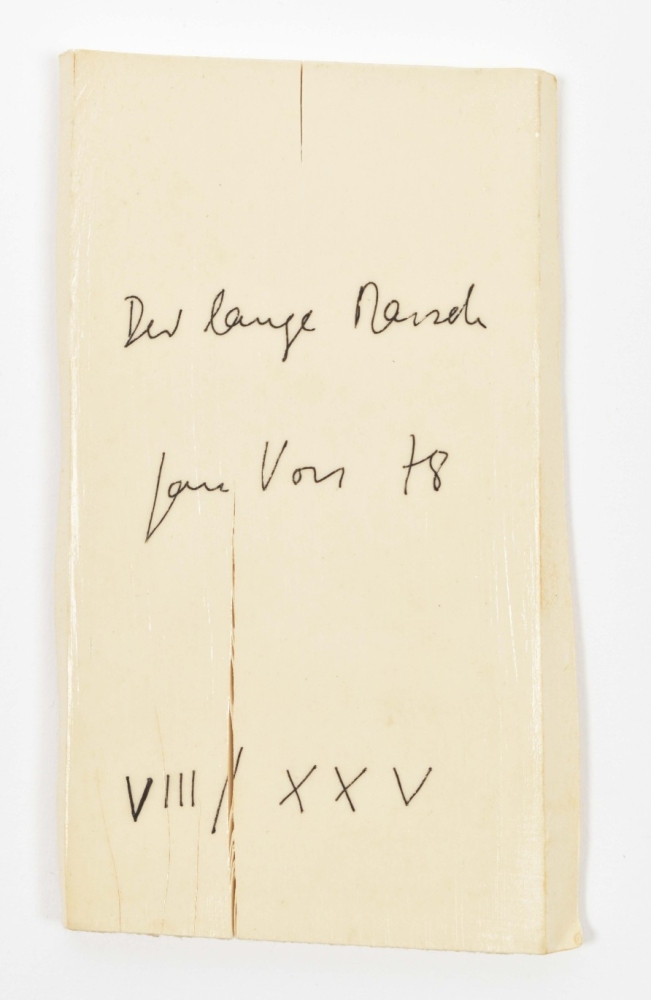 Der lange Marsch
Jan Voss 78
VIII / XXV